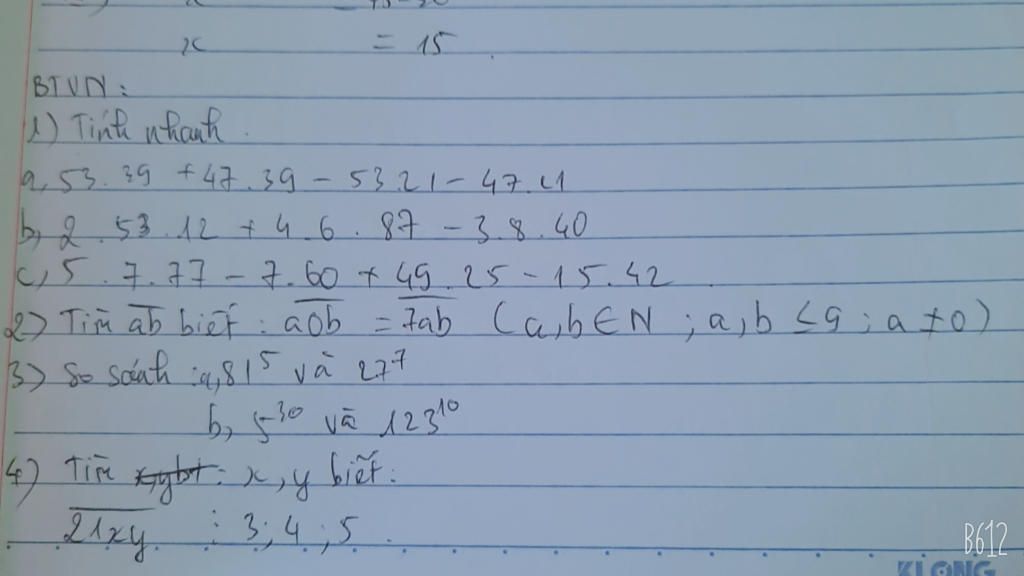 x = 15
BTVN:
1) Tính nhanh.
a, 53.39 + 47.39 - 53.21 - 47.21
b, 2.53.12 + 4.6.87 - 3.8.40
c, 5.7.77 - 7.60 + 49.25 - 15.42
2) Tìm ab biết: a0b = 7ab (a,b ∈ N; a,b ≤ 9; a ≠ 0)
3) So sánh: a, 81⁵ và 27⁷
b, 5³⁰ và 123¹⁰
4) Tìm x, y biết:
21xy ⋮ 3; 4; 5.
B612
KLONG